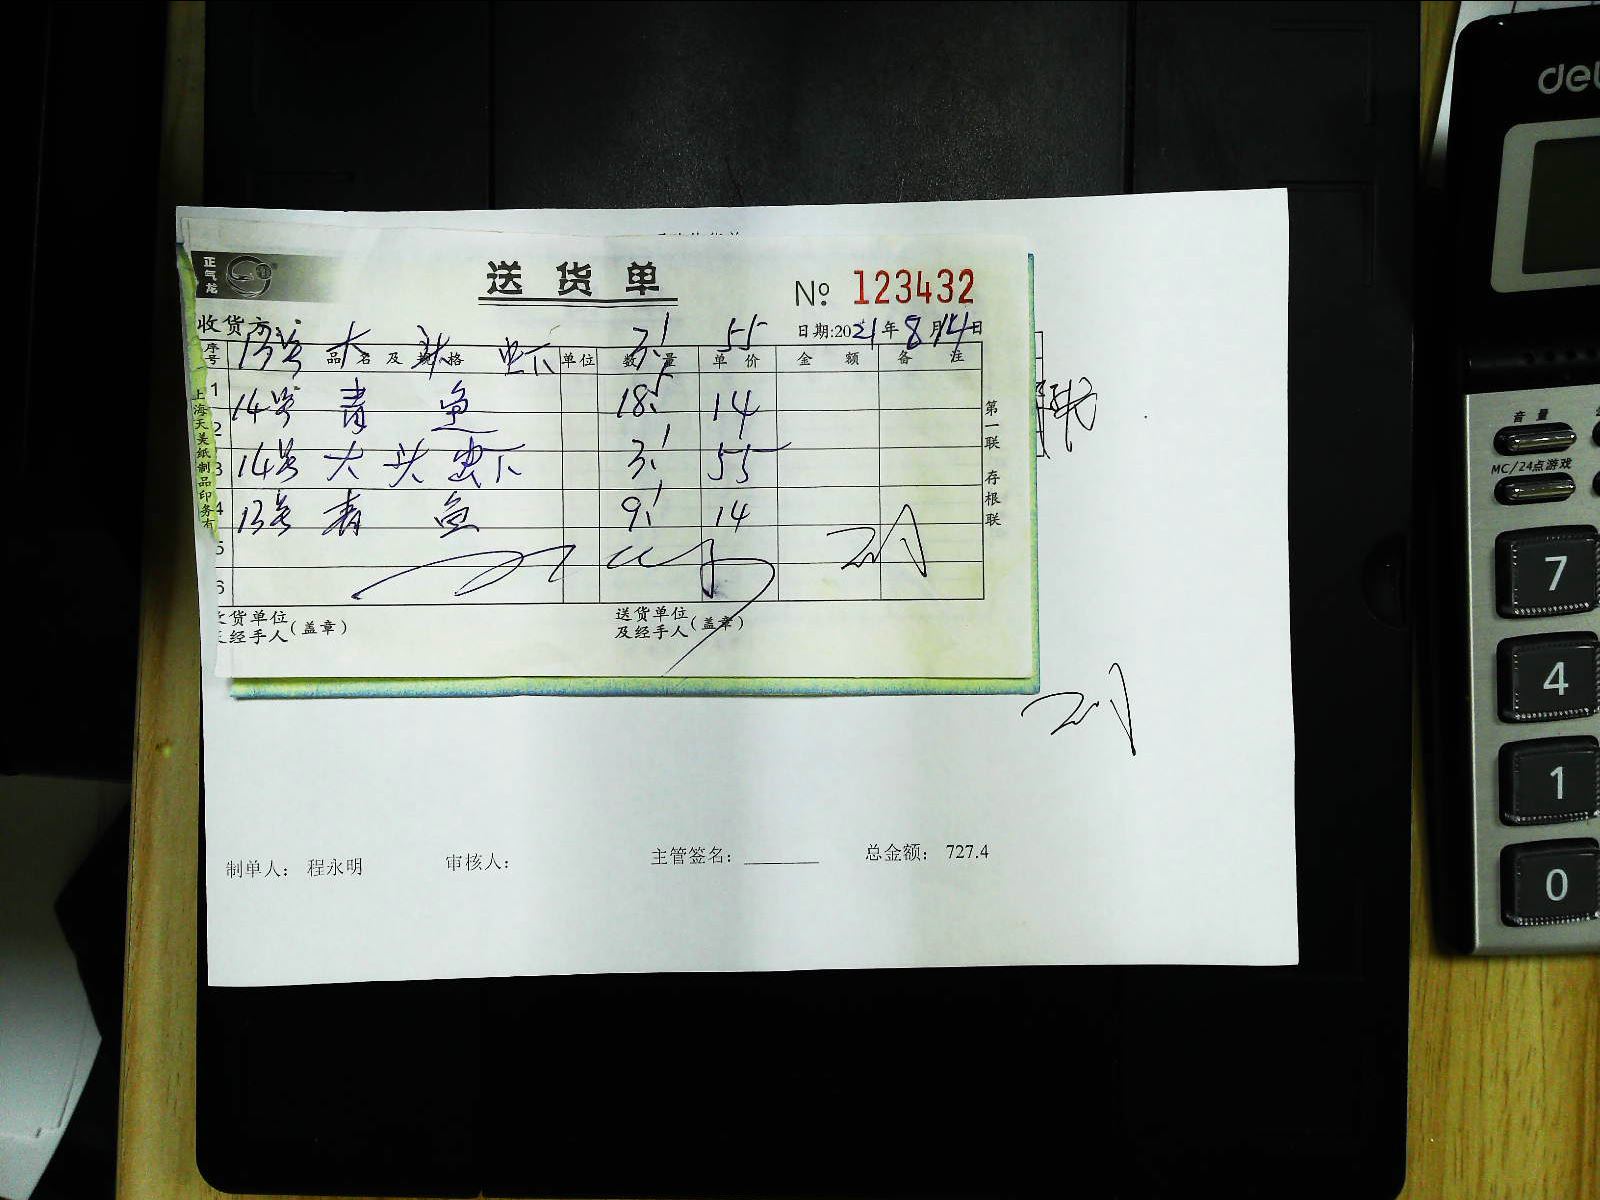 正气龙
送货单
№ 123432
收货方
日期:2021年8月14日
13号 大头虾 3.1 55
序号 品名及规格 单位 数量 单价 金额 备注
1 14号 青鱼 18.5 14
2
3 14号 大头虾 3.1 55
4 13号 青鱼 9.1 14
5
6
上海天美纸制品印务有
第一联 存根联
收货单位
及经手人(盖章)
送货单位
及经手人(盖章)
制单人: 程永明 审核人: 主管签名: 总金额: 727.4
deli
音量
MC/24点游戏
7
4
1
0